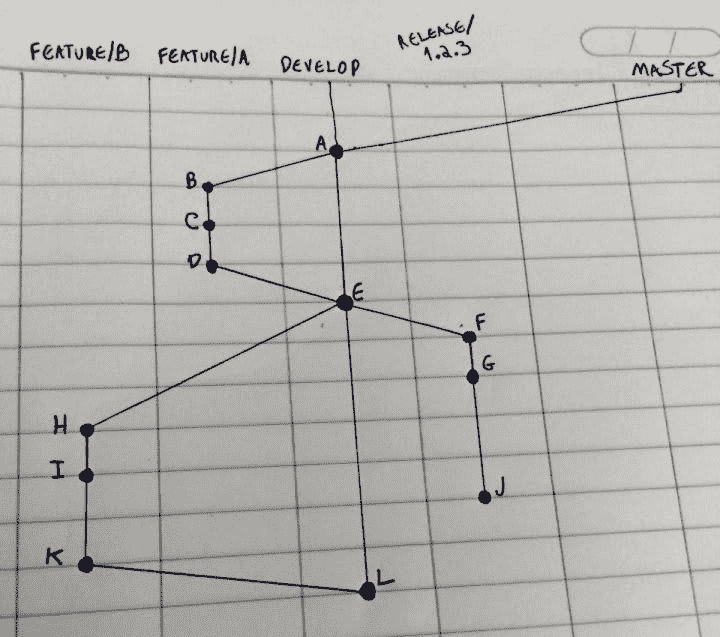 FEATURE/B
FEATURE/A
DEVELOP
RELEASE/
1.2.3
MASTER
A
B
C
D
E
F
G
H
I
J
K
L